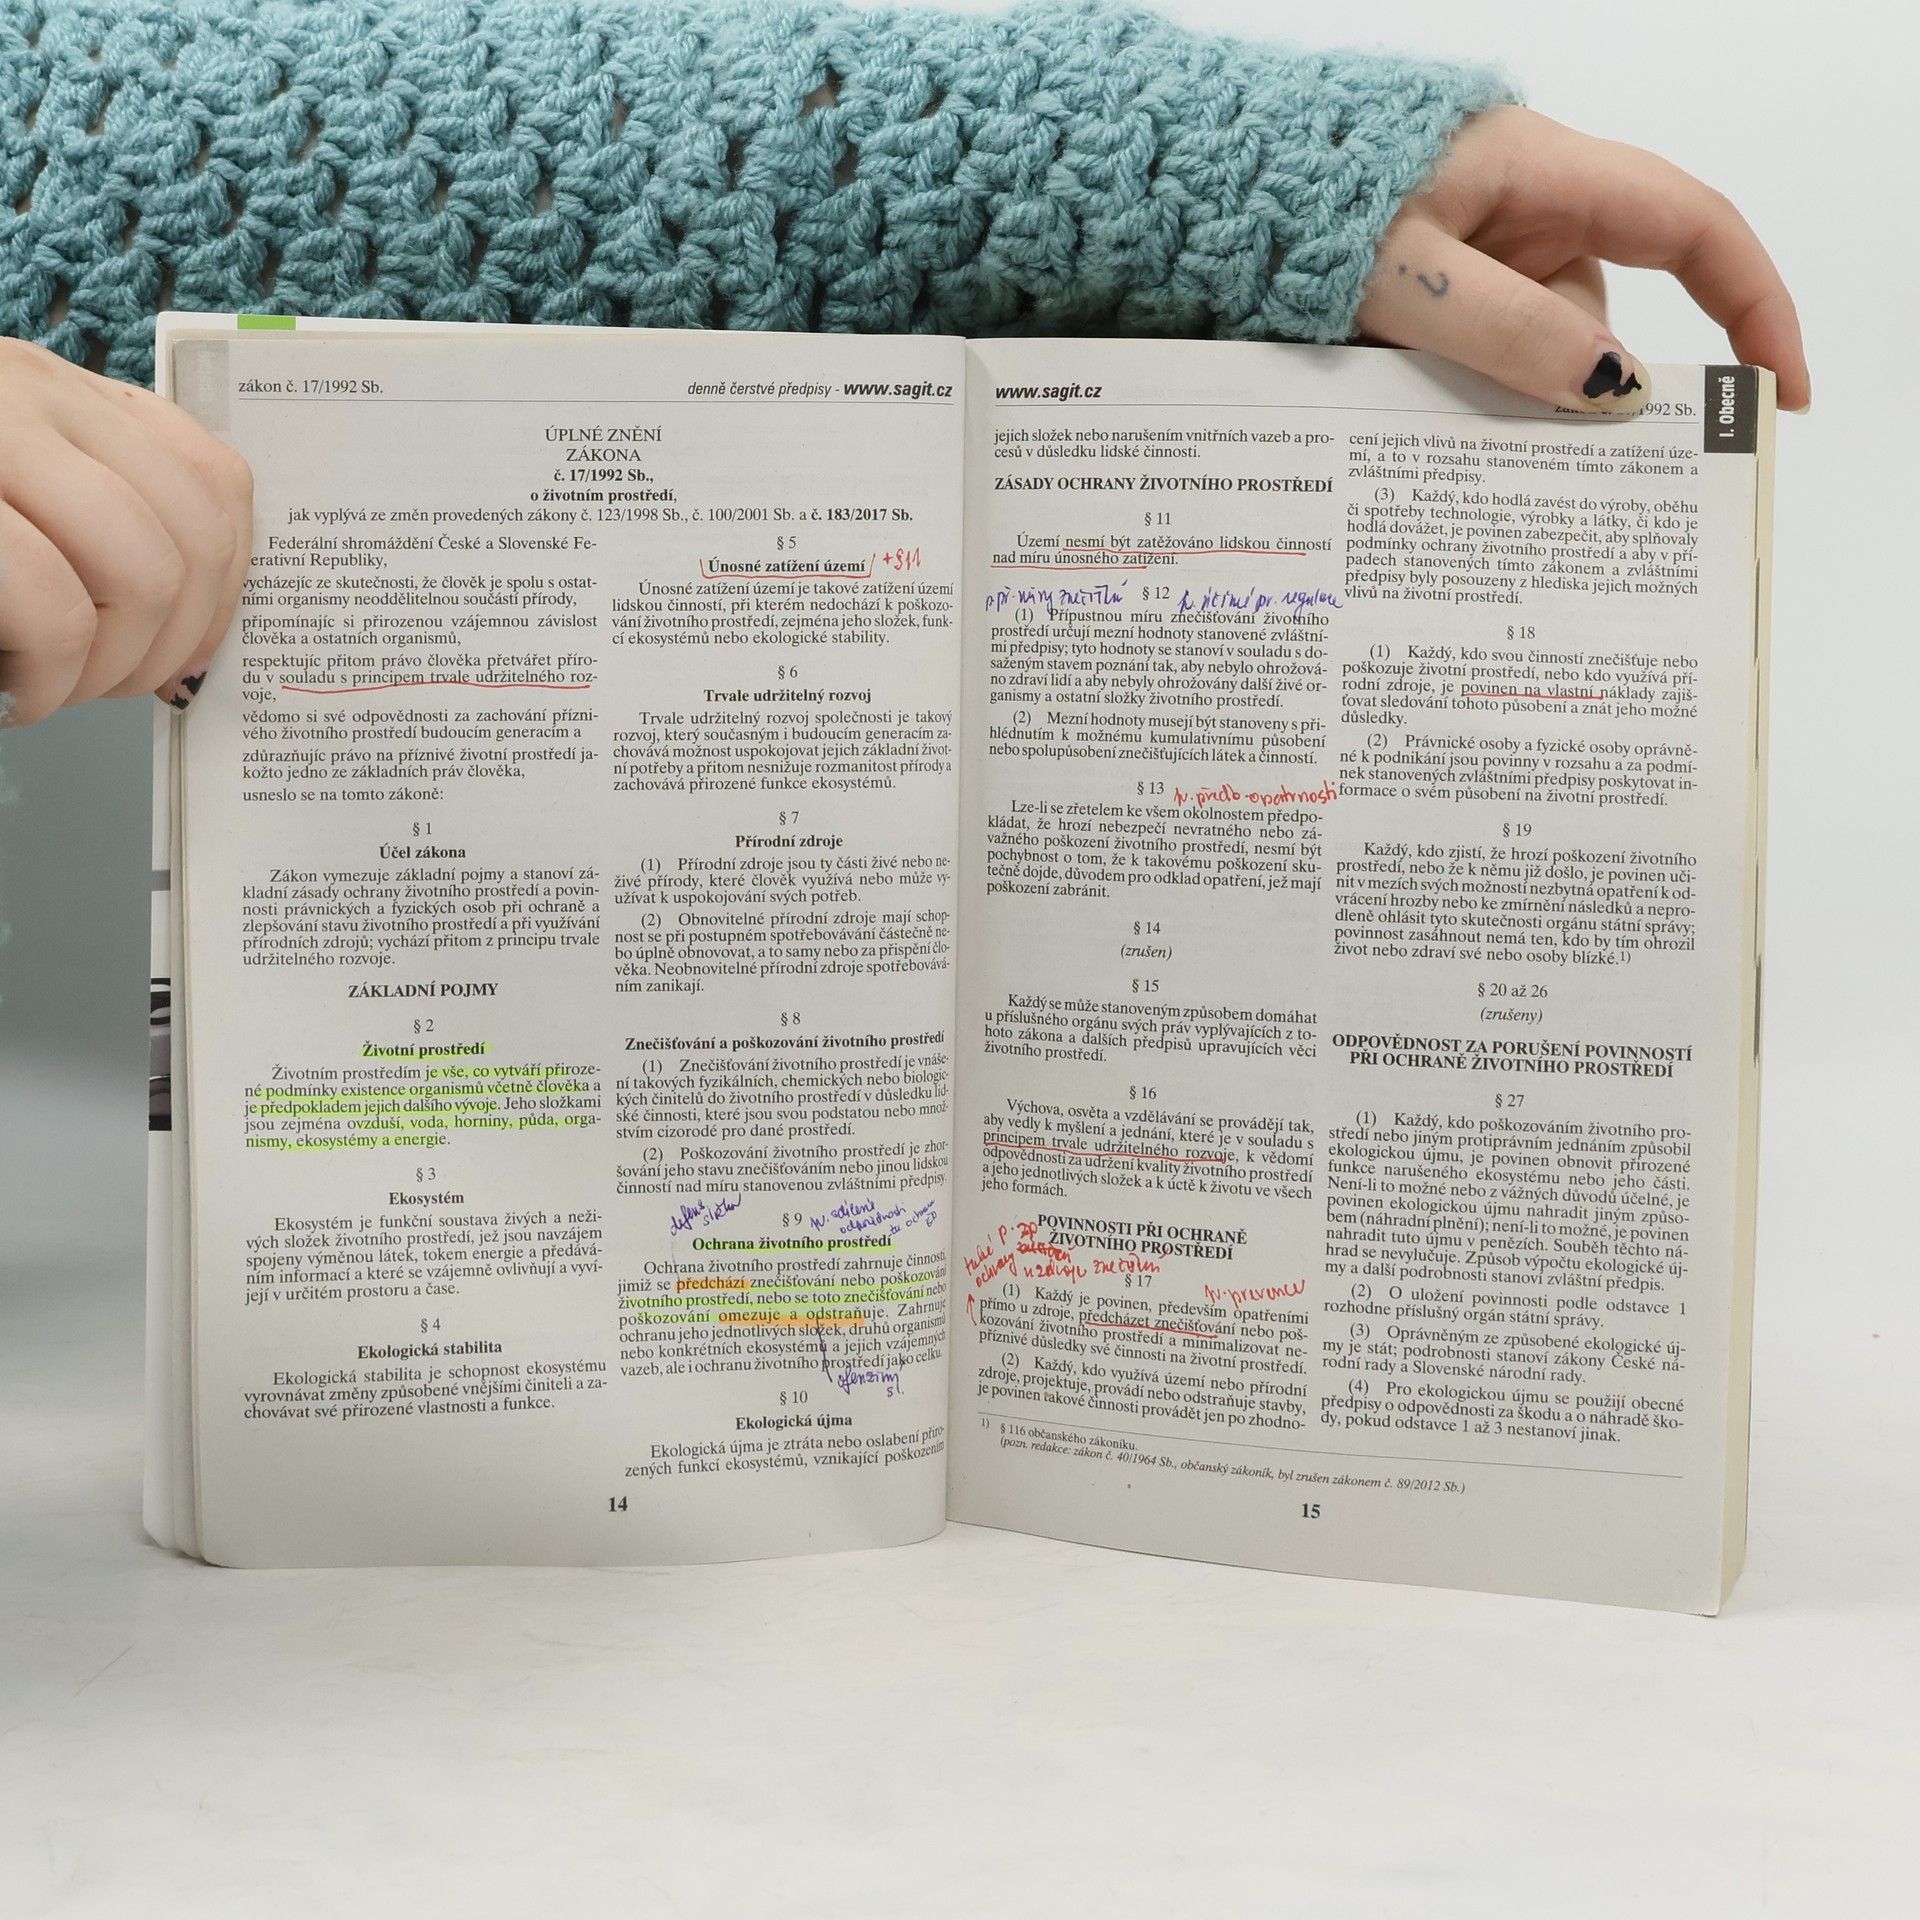 zákon č. 17/1992 Sb.
denně čerstvé předpisy - www.sagit.cz
ÚPLNÉ ZNĚNÍ
ZÁKONA
č. 17/1992 Sb.,
o životním prostředí,
jak vyplývá ze změn provedených zákony č. 123/1998 Sb., č. 100/2001 Sb. a č. 183/2017 Sb.
Federální shromáždění České a Slovenské Fe-
erativní Republiky,
vycházejíc ze skutečnosti, že člověk je spolu s ostat-
ními organismy neoddělitelnou součástí přírody,
připomínajíc si přirozenou vzájemnou závislost
člověka a ostatních organismů,
respektujíc přitom právo člověka přetvářet příro-
du v souladu s principem trvale udržitelného roz-
voje,
vědomo si své odpovědnosti za zachování přízni-
vého životního prostředí budoucím generacím a
zdůrazňujíc právo na příznivé životní prostředí ja-
kožto jedno ze základních práv člověka,
usneslo se na tomto zákoně:
§ 1
Účel zákona
Zákon vymezuje základní pojmy a stanoví zá-
kladní zásady ochrany životního prostředí a povin-
nosti právnických a fyzických osob při ochraně a
zlepšování stavu životního prostředí a při využívání
přírodních zdrojů; vychází přitom z principu trvale
udržitelného rozvoje.
ZÁKLADNÍ POJMY
§ 2
Životní prostředí
Životním prostředím je vše, co vytváří přiroze-
né podmínky existence organismů včetně člověka a
je předpokladem jejich dalšího vývoje. Jeho složkami
jsou zejména ovzduší, voda, horniny, půda, orga-
nismy, ekosystémy a energie.
§ 3
Ekosystém
Ekosystém je funkční soustava živých a neži-
vých složek životního prostředí, jež jsou navzájem
spojeny výměnou látek, tokem energie a předává-
ním informací a které se vzájemně ovlivňují a vyví-
její v určitém prostoru a čase.
§ 4
Ekologická stabilita
Ekologická stabilita je schopnost ekosystému
vyrovnávat změny způsobené vnějšími činiteli a za-
chovávat své přirozené vlastnosti a funkce.
§ 5
Únosné zatížení území + § 11
Únosné zatížení území je takové zatížení území
lidskou činností, při kterém nedochází k poškozo-
vání životního prostředí, zejména jeho složek, funk-
cí ekosystémů nebo ekologické stability.
§ 6
Trvale udržitelný rozvoj
Trvale udržitelný rozvoj společnosti je takový
rozvoj, který současným i budoucím generacím za-
chovává možnost uspokojovat jejich základní život-
ní potřeby a přitom nesnižuje rozmanitost přírody a
zachovává přirozené funkce ekosystémů.
§ 7
Přírodní zdroje
(1) Přírodní zdroje jsou ty části živé nebo ne-
živé přírody, které člověk využívá nebo může vy-
užívat k uspokojování svých potřeb.
(2) Obnovitelné přírodní zdroje mají schop-
nost se při postupném spotřebovávání částečně ne-
bo úplně obnovovat, a to samy nebo za přispění člo-
věka. Neobnovitelné přírodní zdroje spotřebovává-
ním zanikají.
§ 8
Znečišťování a poškozování životního prostředí
(1) Znečišťování životního prostředí je vnáše-
ní takových fyzikálních, chemických nebo biologic-
kých činitelů do životního prostředí v důsledku lid-
ské činnosti, které jsou svou podstatou nebo množ-
stvím cizorodé pro dané prostředí.
(2) Poškozování životního prostředí je zhor-
šování jeho stavu znečišťováním nebo jinou lidskou
činností nad míru stanovenou zvláštními předpisy.
§ 9
Ochrana životního prostředí
Ochrana životního prostředí zahrnuje činnosti,
jimiž se předchází znečišťování nebo poškozování
životního prostředí, nebo se toto znečišťování nebo
poškozování omezuje a odstraňuje. Zahrnuje
ochranu jeho jednotlivých složek, druhů organismů
nebo konkrétních ekosystémů a jejich vzájemných
vazeb, ale i ochranu životního prostředí jako celku.
§ 10
Ekologická újma
Ekologická újma je ztráta nebo oslabení přiro-
zených funkcí ekosystémů, vznikající poškozením
14
www.sagit.cz
1992 Sb.
I. Obecně
jejich složek nebo narušením vnitřních vazeb a pro-
cesů v důsledku lidské činnosti.
ZÁSADY OCHRANY ŽIVOTNÍHO PROSTŘEDÍ
§ 11
Území nesmí být zatěžováno lidskou činností
nad míru únosného zatížení.
§ 12
(1) Přípustnou míru znečišťování životního
prostředí určují mezní hodnoty stanovené zvláštní-
mi předpisy; tyto hodnoty se stanoví v souladu s do-
saženým stavem poznání tak, aby nebylo ohrožová-
no zdraví lidí a aby nebyly ohrožovány další živé or-
ganismy a ostatní složky životního prostředí.
(2) Mezní hodnoty musejí být stanoveny s při-
hlédnutím k možnému kumulativnímu působení
nebo spolupůsobení znečišťujících látek a činností.
§ 13 p. předb. opatrnosti
Lze-li se zřetelem ke všem okolnostem předpo-
kládat, že hrozí nebezpečí nevratného nebo zá-
važného poškození životního prostředí, nesmí být
pochybnost o tom, že k takovému poškození sku-
tečně dojde, důvodem pro odklad opatření, jež mají
poškození zabránit.
§ 14
(zrušen)
§ 15
Každý se může stanoveným způsobem domáhat
u příslušného orgánu svých práv vyplývajících z to-
hoto zákona a dalších předpisů upravujících věci
životního prostředí.
§ 16
Výchova, osvěta a vzdělávání se provádějí tak,
aby vedly k myšlení a jednání, které je v souladu s
principem trvale udržitelného rozvoje, k vědomí
odpovědnosti za udržení kvality životního prostředí
a jeho jednotlivých složek a k úctě k životu ve všech
jeho formách.
POVINNOSTI PŘI OCHRANĚ
ŽIVOTNÍHO PROSTŘEDÍ
§ 17
p. prevence
(1) Každý je povinen, především opatřeními
přímo u zdroje, předcházet znečišťování nebo poš-
kozování životního prostředí a minimalizovat ne-
příznivé důsledky své činnosti na životní prostředí.
(2) Každý, kdo využívá území nebo přírodní
zdroje, projektuje, provádí nebo odstraňuje stavby,
je povinen takové činnosti provádět jen po zhodno-
cení jejich vlivů na životní prostředí a zatížení úze-
mí, a to v rozsahu stanoveném tímto zákonem a
zvláštními předpisy.
(3) Každý, kdo hodlá zavést do výroby, oběhu
či spotřeby technologie, výrobky a látky, či kdo je
hodlá dovážet, je povinen zabezpečit, aby splňovaly
podmínky ochrany životního prostředí a aby v pří-
padech stanovených tímto zákonem a zvláštními
předpisy byly posouzeny z hlediska jejich možných
vlivů na životní prostředí.
§ 18
(1) Každý, kdo svou činností znečišťuje nebo
poškozuje životní prostředí, nebo kdo využívá pří-
rodní zdroje, je povinen na vlastní náklady zajiš-
ťovat sledování tohoto působení a znát jeho možné
důsledky.
(2) Právnické osoby a fyzické osoby oprávně-
né k podnikání jsou povinny v rozsahu a za podmí-
nek stanovených zvláštními předpisy poskytovat in-
formace o svém působení na životní prostředí.
§ 19
Každý, kdo zjistí, že hrozí poškození životního
prostředí, nebo že k němu již došlo, je povinen uči-
nit v mezích svých možností nezbytná opatření k od-
vrácení hrozby nebo ke zmírnění následků a nepro-
dleně ohlásit tyto skutečnosti orgánu státní správy;
povinnost zasáhnout nemá ten, kdo by tím ohrozil
život nebo zdraví své nebo osoby blízké.1)
§ 20 až 26
(zrušeny)
ODPOVĚDNOST ZA PORUŠENÍ POVINNOSTÍ
PŘI OCHRANĚ ŽIVOTNÍHO PROSTŘEDÍ
§ 27
(1) Každý, kdo poškozováním životního pro-
středí nebo jiným protiprávním jednáním způsobil
ekologickou újmu, je povinen obnovit přirozené
funkce narušeného ekosystému nebo jeho části.
Není-li to možné nebo z vážných důvodů účelné, je
povinen ekologickou újmu nahradit jiným způso-
bem (náhradní plnění); není-li to možné, je povinen
nahradit tuto újmu v penězích. Souběh těchto ná-
hrad se nevylučuje. Způsob výpočtu ekologické új-
my a další podrobnosti stanoví zvláštní předpis.
(2) O uložení povinnosti podle odstavce 1
rozhodne příslušný orgán státní správy.
(3) Oprávněným ze způsobené ekologické új-
my je stát; podrobnosti stanoví zákony České ná-
rodní rady a Slovenské národní rady.
(4) Pro ekologickou újmu se použijí obecné
předpisy o odpovědnosti za škodu a o náhradě ško-
dy, pokud odstavce 1 až 3 nestanoví jinak.
1) § 116 občanského zákoníku.
(pozn. redakce: zákon č. 40/1964 Sb., občanský zákoník, byl zrušen zákonem č. 89/2012 Sb.)
15